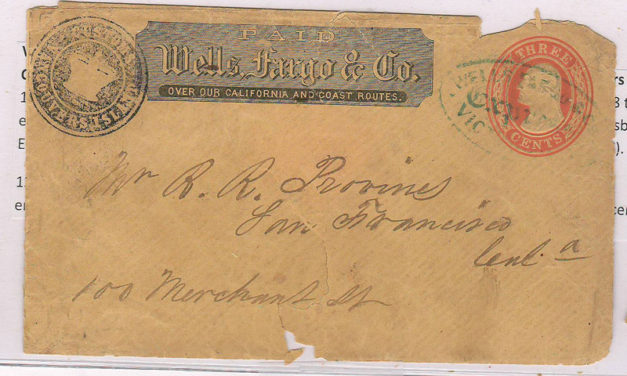 PAID
Wells, Fargo & Co.
OVER OUR CALIFORNIA AND COAST ROUTES.
THREE
CENTS
WELLS
VIC
Mr R. R. Provines
San Francisco
Cal a
100 Merchant St